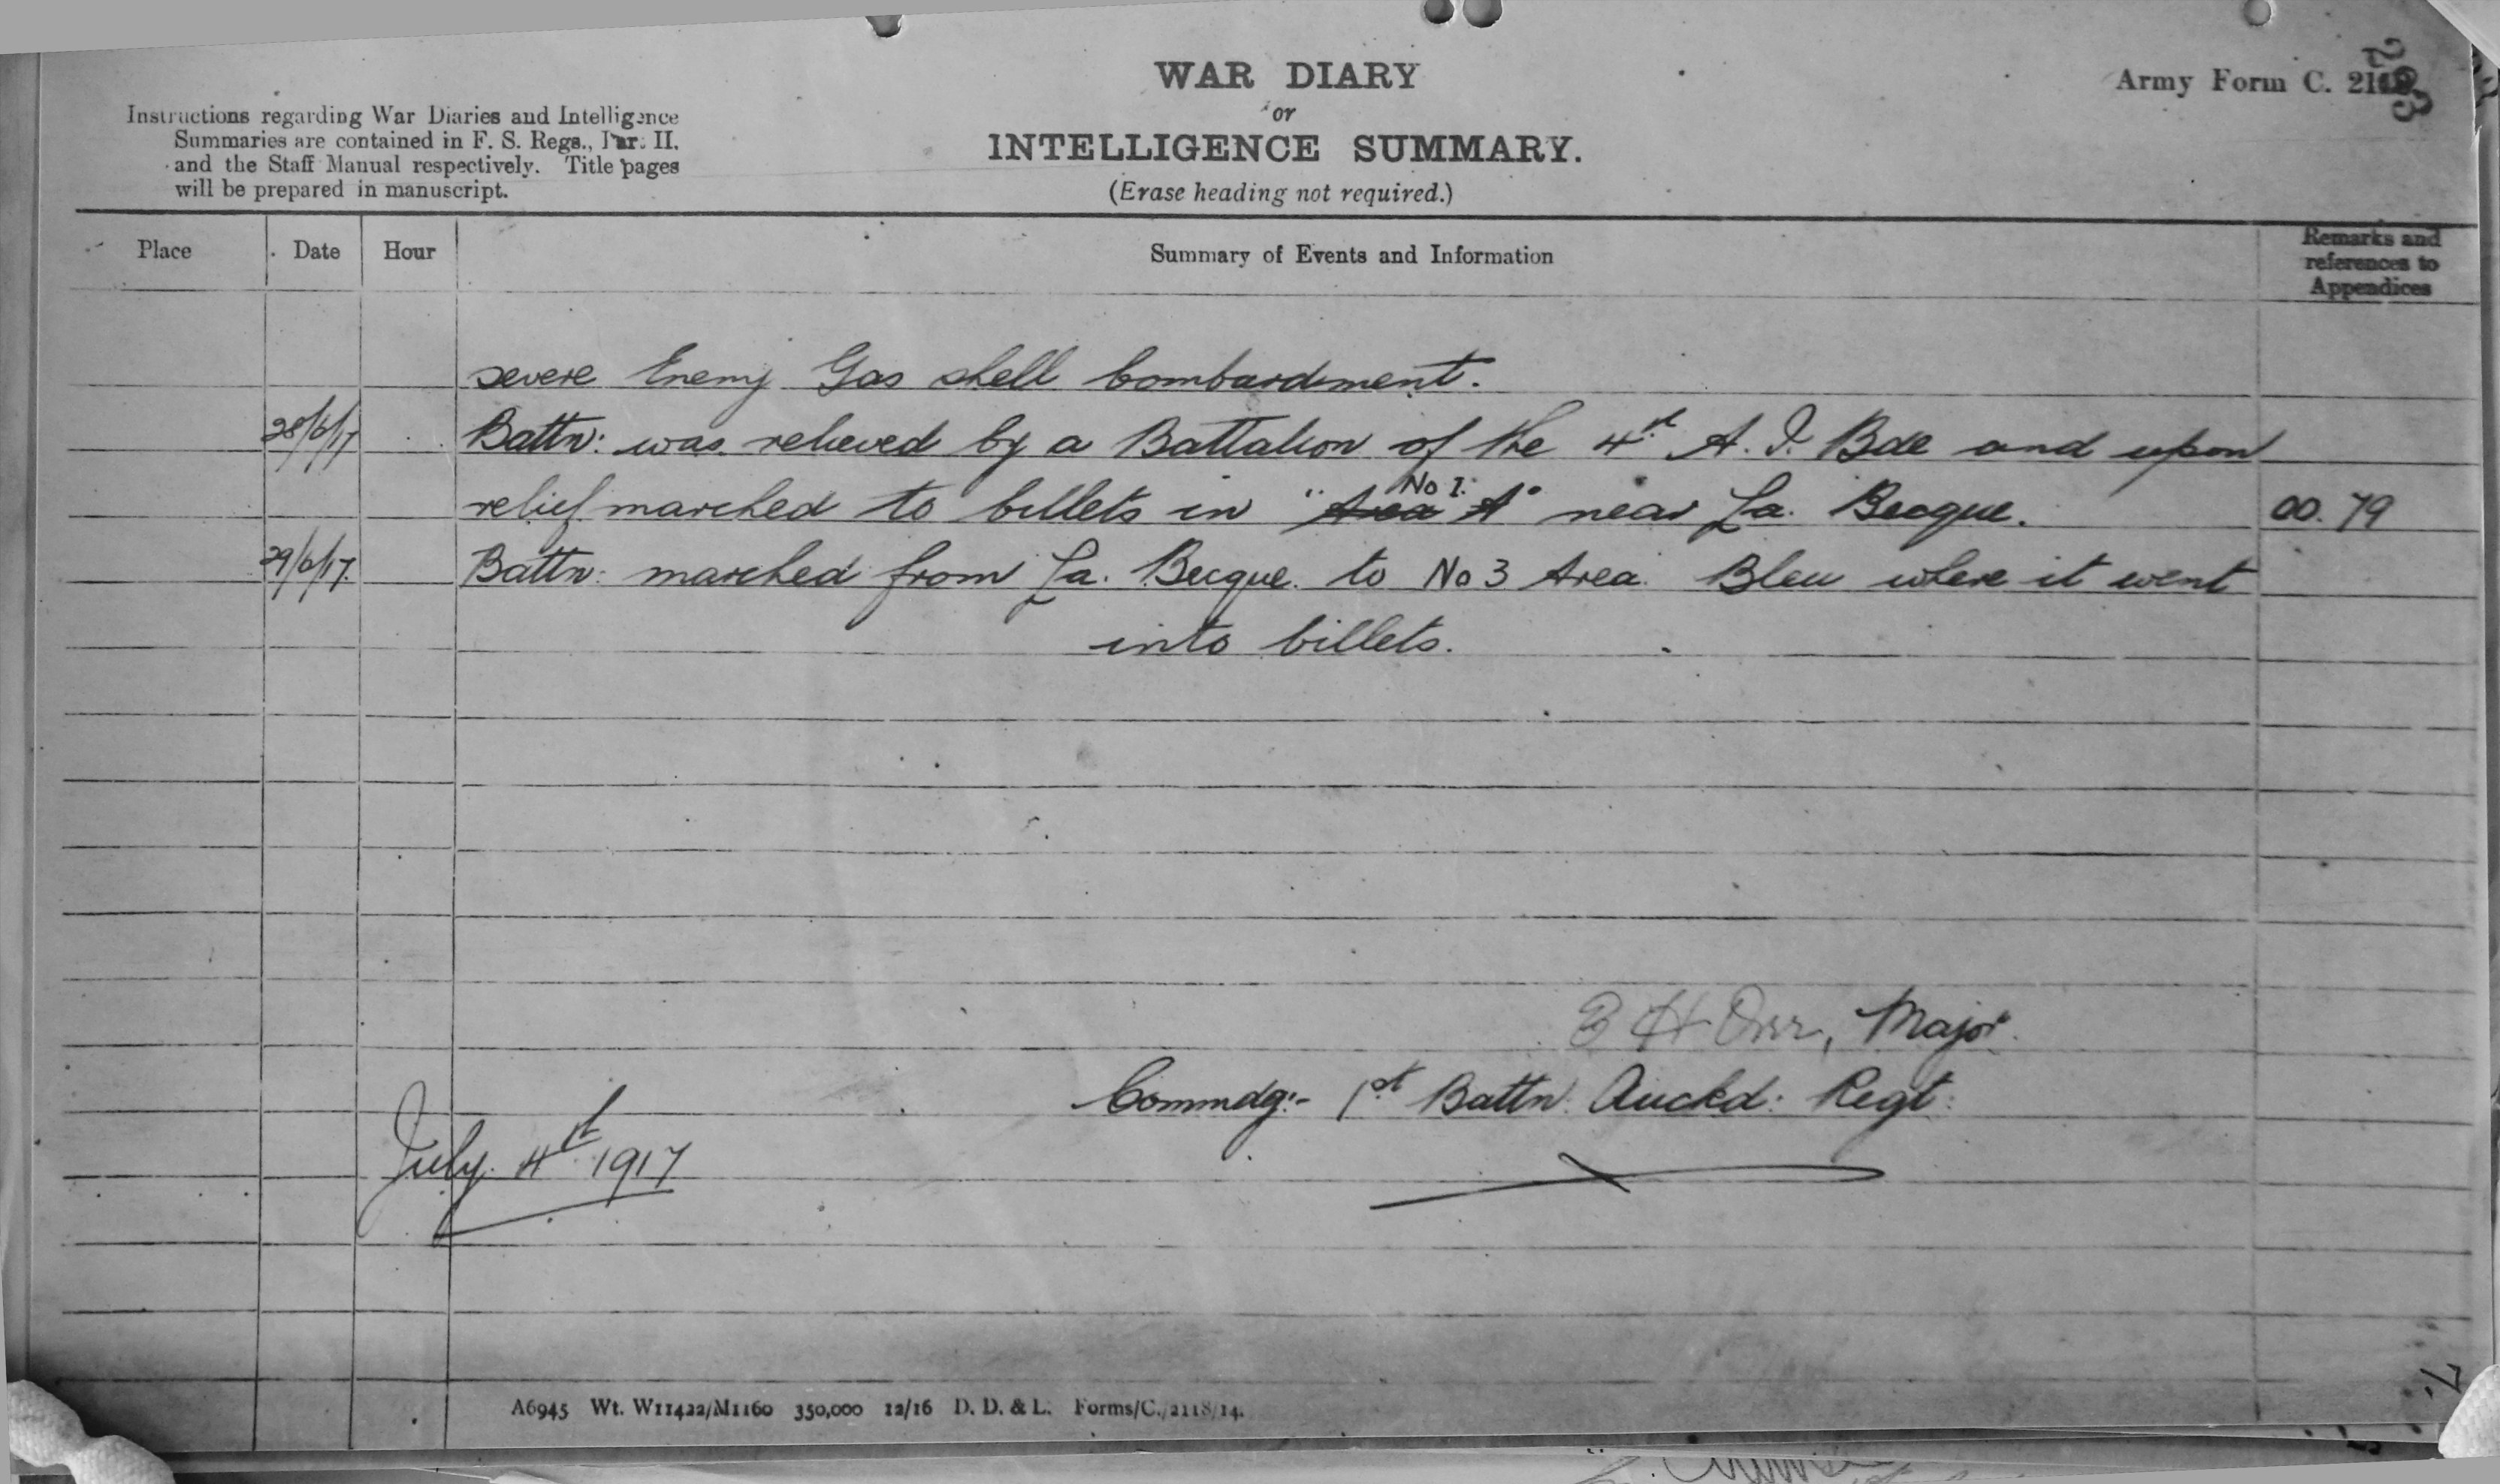 WAR DIARY
or
INTELLIGENCE SUMMARY.
(Erase heading not required.)
Instructions regarding War Diaries and Intelligence
Summaries are contained in F. S. Regs., Part II.
and the Staff Manual respectively. Title pages
will be prepared in manuscript.
Army Form C. 2118
293
Place Date Hour Summary of Events and Information Remarks and
references to
Appendices
severe Enemy Gas shell bombardment.
28/6/17 Battn: was relieved by a Battalion of the 4th A. I. Bde and upon
No 1.
relief marched to billets in "Area A" near La. Becque. OO. 79
29/6/17. Battn: marched from La. Becque. to No 3 Area. Bleu where it went
into billets.
E H Orr, Major.
Commdg:- 1st Battn. Auckd. Regt.
July. 4th 1917
7.
A6945 Wt. W11422/M1160 350,000 12/16 D. D. & L. Forms/C./2118/14.